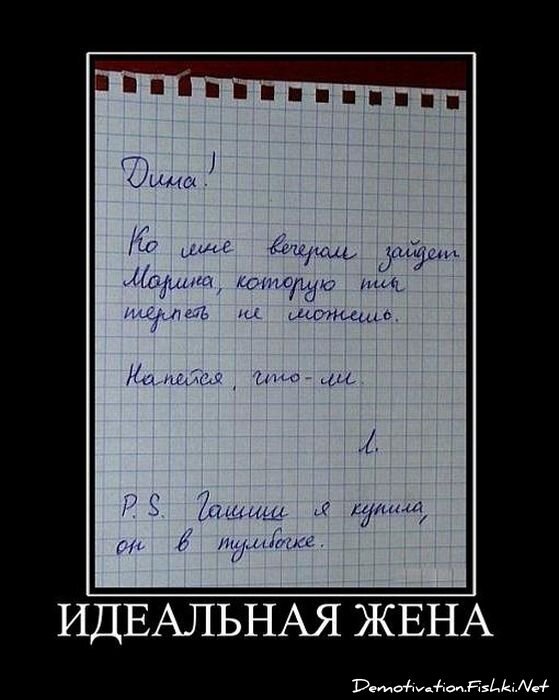 Дима!
Ко мне вечером зайдет
Марина, которую ты
терпеть не можешь.
Напейся, что-ли.
Л.
P.S. Гашиш я купила,
он в тумбочке.
ИДЕАЛЬНАЯ ЖЕНА
Demotivation.Fishki.Net